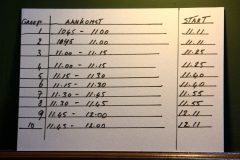 Groep AANKOMST START
1 1045 - 11.00 11.11
2 1045 11.00 11.11
3 11.00 - 11.15 11.25
4 11.00 - 11.15 11.25
5 11.15 - 11.30 11.40
6 11.15 - 11.30 11.40
7 11.30 - 11.45 11.55
8 11.30 - 11.45 11.55
9 11.45 - 12.00 12.11
10 11.45 - 12.00 12.11